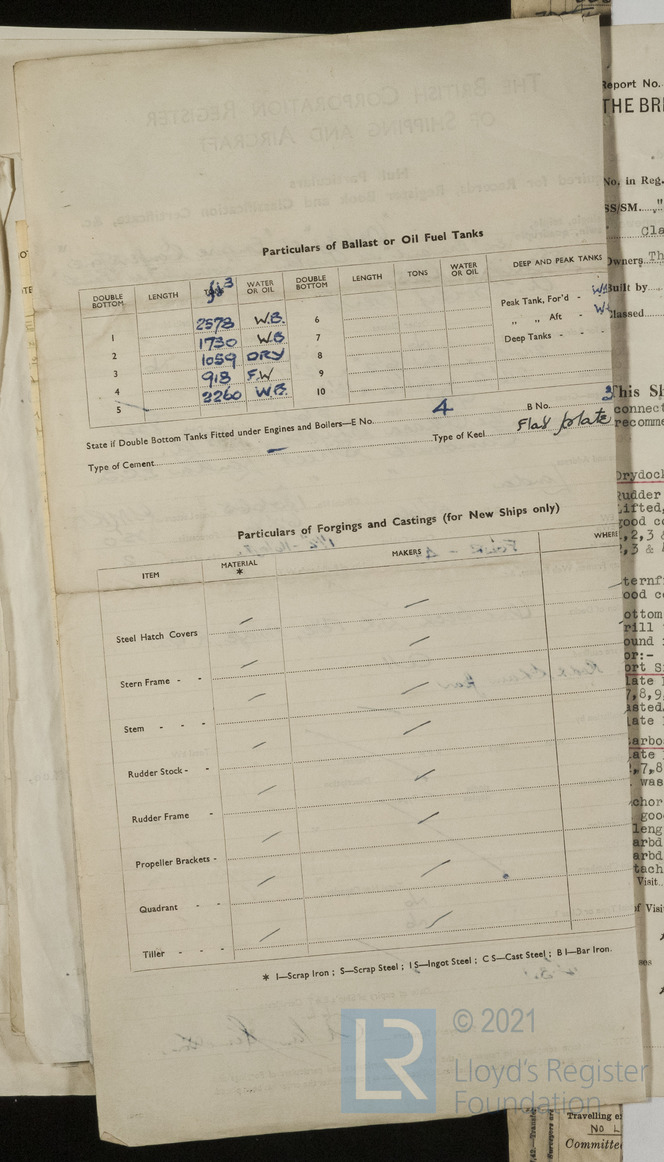 Particulars of Ballast or Oil Fuel Tanks
DOUBLE BOTTOM LENGTH WATER OR OIL DOUBLE BOTTOM LENGTH TONS WATER OR OIL DEEP AND PEAK TANKS
1 2578 W.B. 6 Peak Tank, For'd -
2 1730 W.B 7 „ „ Aft -
3 1059 DRY 8 Deep Tanks - - -
4 918 F.W 9
5 2260 W.B. 10
State if Double Bottom Tanks Fitted under Engines and Boilers—E No. 4 B No.
Type of Cement — Type of Keel Flat plate
Particulars of Forgings and Castings (for New Ships only)
ITEM MATERIAL * MAKERS WHERE
Steel Hatch Covers
Stern Frame - -
Stem - - -
Rudder Stock - -
Rudder Frame -
Propeller Brackets -
Quadrant - -
Tiller - - -
* I—Scrap Iron ; S—Scrap Steel ; I S—Ingot Steel ; C S—Cast Steel ; B I—Bar Iron.
© 2021
LR
Lloyd's Register
Foundation
Report No.
THE BRI
No. in Reg.
SS/SM. "
Cla
Owners Th
Built by
Classed
This Sh
connect
recomme
Drydock
Rudder
Lifted,
good co
1,2,3 &
,3 &
ternf
ood co
ottom
rill
ound
or:-
ort S
late
7,8,9,
asted.
late
arbo
late
,7,8
was
chor
goo
leng
arbd
arbd
tach
Visit
of Visi
Travelling e
NO L
Committe